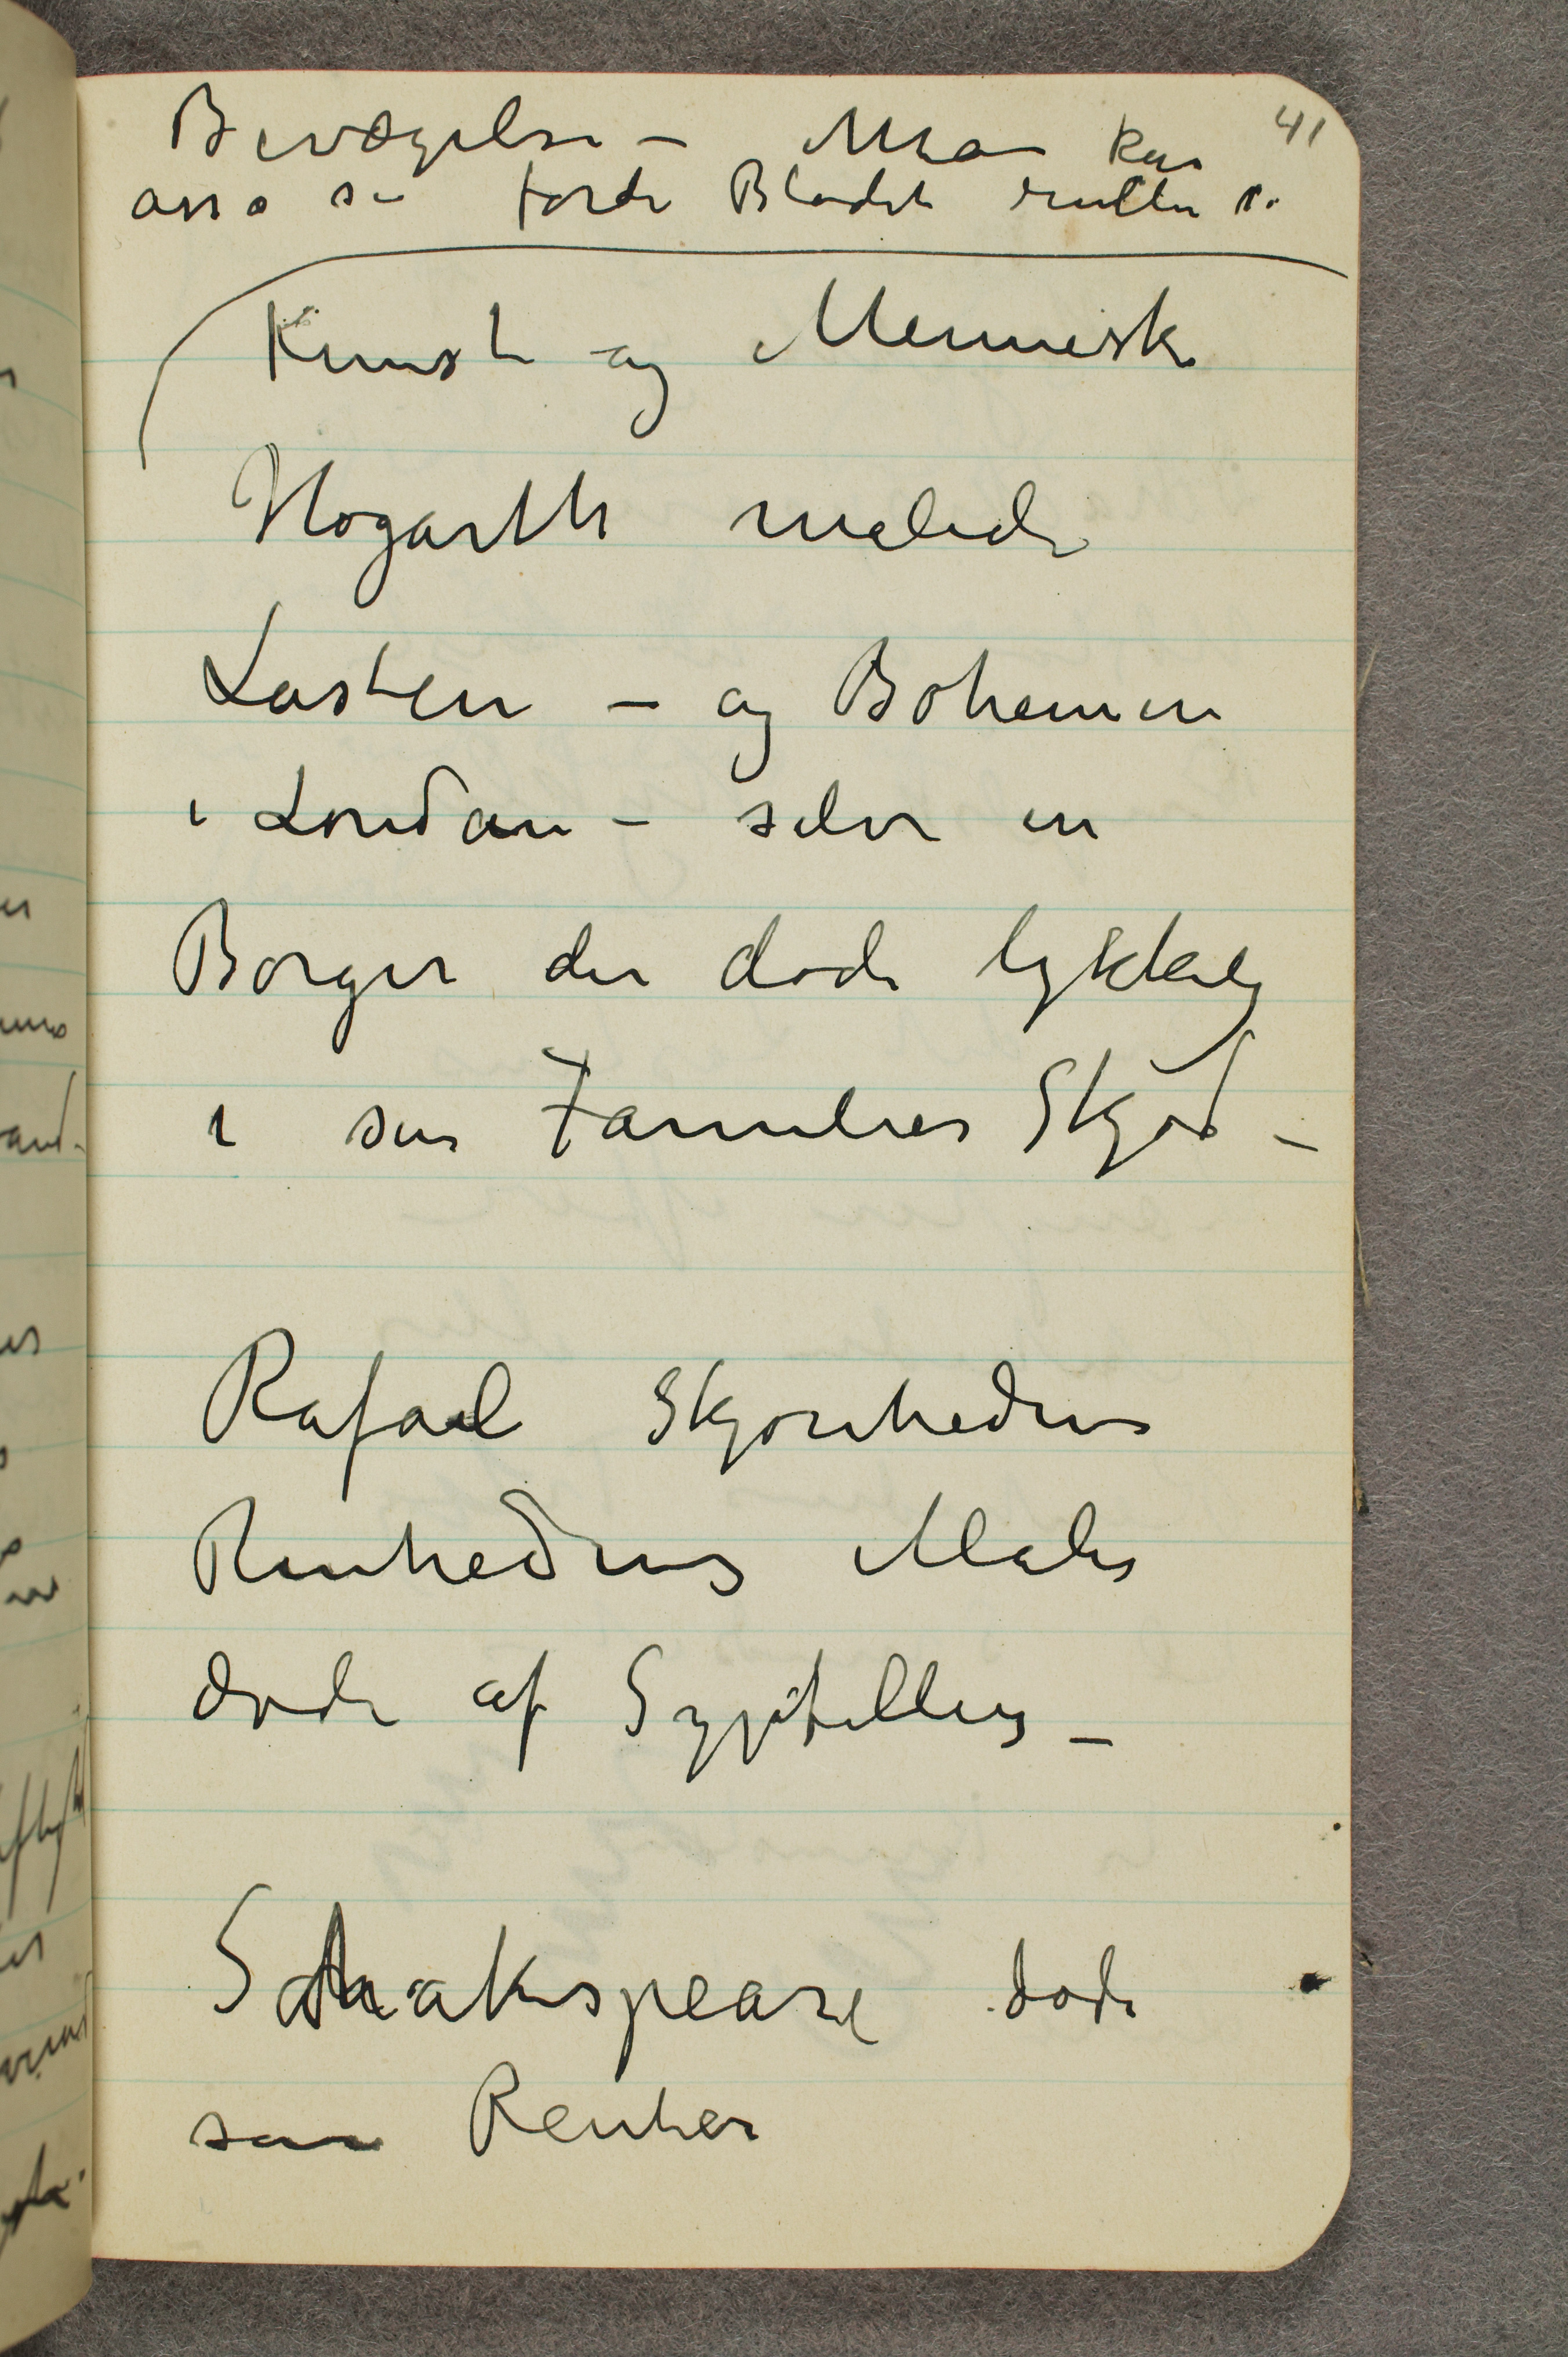 41
Bevægelse – Man kan
osså se fordi Blodet ruller i
Kunst og Menneske
Hogarth malede
Lasten – og Bohemen
i London – selv en
Borger der døde lykkelig
i sin Families Skjød –
Rafael Skjønhedens
Renhedens Maler
døde af Syfillis –
Schakespeare døde
som Rentier